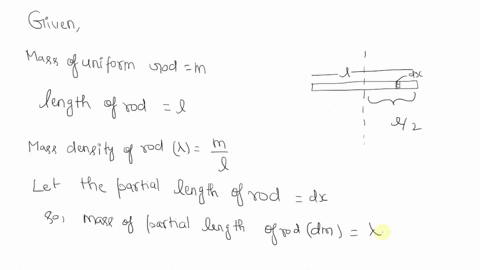 Given,
Mass of uniform rod = m
length of rod = l
Mass density of rod (λ) = m/l
Let the partial length of rod = dx
So, mass of partial length of rod (dm) = λ
l
dx
l/2